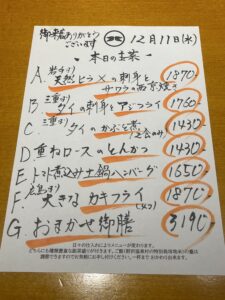 御来店ありがとう
ございます
12月11日(水)
本日の主菜
A. 岩手
天然ヒラメの刺身と
サワラの西京焼き 1870-
B. 三重
タイの刺身とアジフライ 1760-
C. 三重
タイのかぶと煮 1430-
D 重ねロースのとんかつ 1430-
E. トマト煮込み土鍋ハンバーグ 1650-
F. 広島
大きなカキフライ 1870-
G. おまかせ御膳 3190-
日々の仕入れによりメニューが変わります。